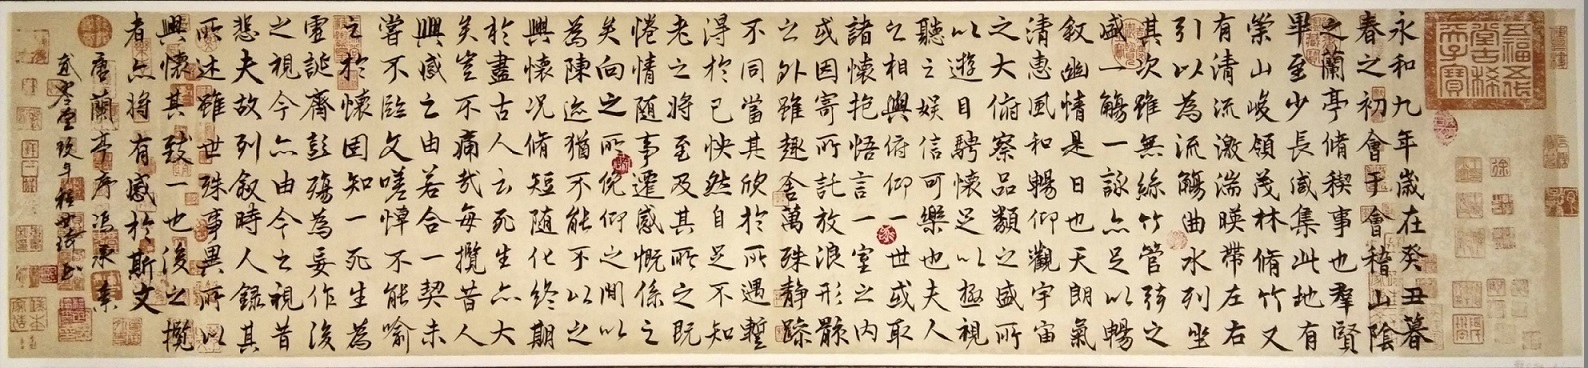 五福五代
堂古稀天
子寶
永和九年歲在癸丑暮
春之初會于會稽山陰
之蘭亭脩稧事也羣賢
畢至少長咸集此地有
崇山峻領茂林脩竹又
有清流激湍暎帶左右
引以為流觴曲水列坐
其次雖無絲竹管弦之
盛一觴一詠亦足以暢
敘幽情是日也天朗氣
清惠風和暢仰觀宇宙
之大俯察品類之盛所
以遊目騁懷足以極視
聽之娛信可樂也夫人
之相與俯仰一世或取
諸懷抱悟言一室之內
或因寄所託放浪形骸
之外雖趣舍萬殊静躁
不同當其欣於所遇暫
得於己快然自足不知
老之將至及其所之既
惓情隨事遷感慨係之
矣向之所俛仰之間以
為陳迹猶不能不以之
興懷況脩短隨化終期
於盡古人云死生亦大
矣豈不痛哉每攬昔人
興感之由若合一契未
嘗不臨文嗟悼不能喻
之於懷固知一死生為
虛誕齊彭殤為妄作後
之視今亦由今之視昔
悲夫故列敘時人錄其
所述雖世殊事異所以
興懷其致一也後之攬
者亦將有感於斯文
唐蘭亭序馮承素